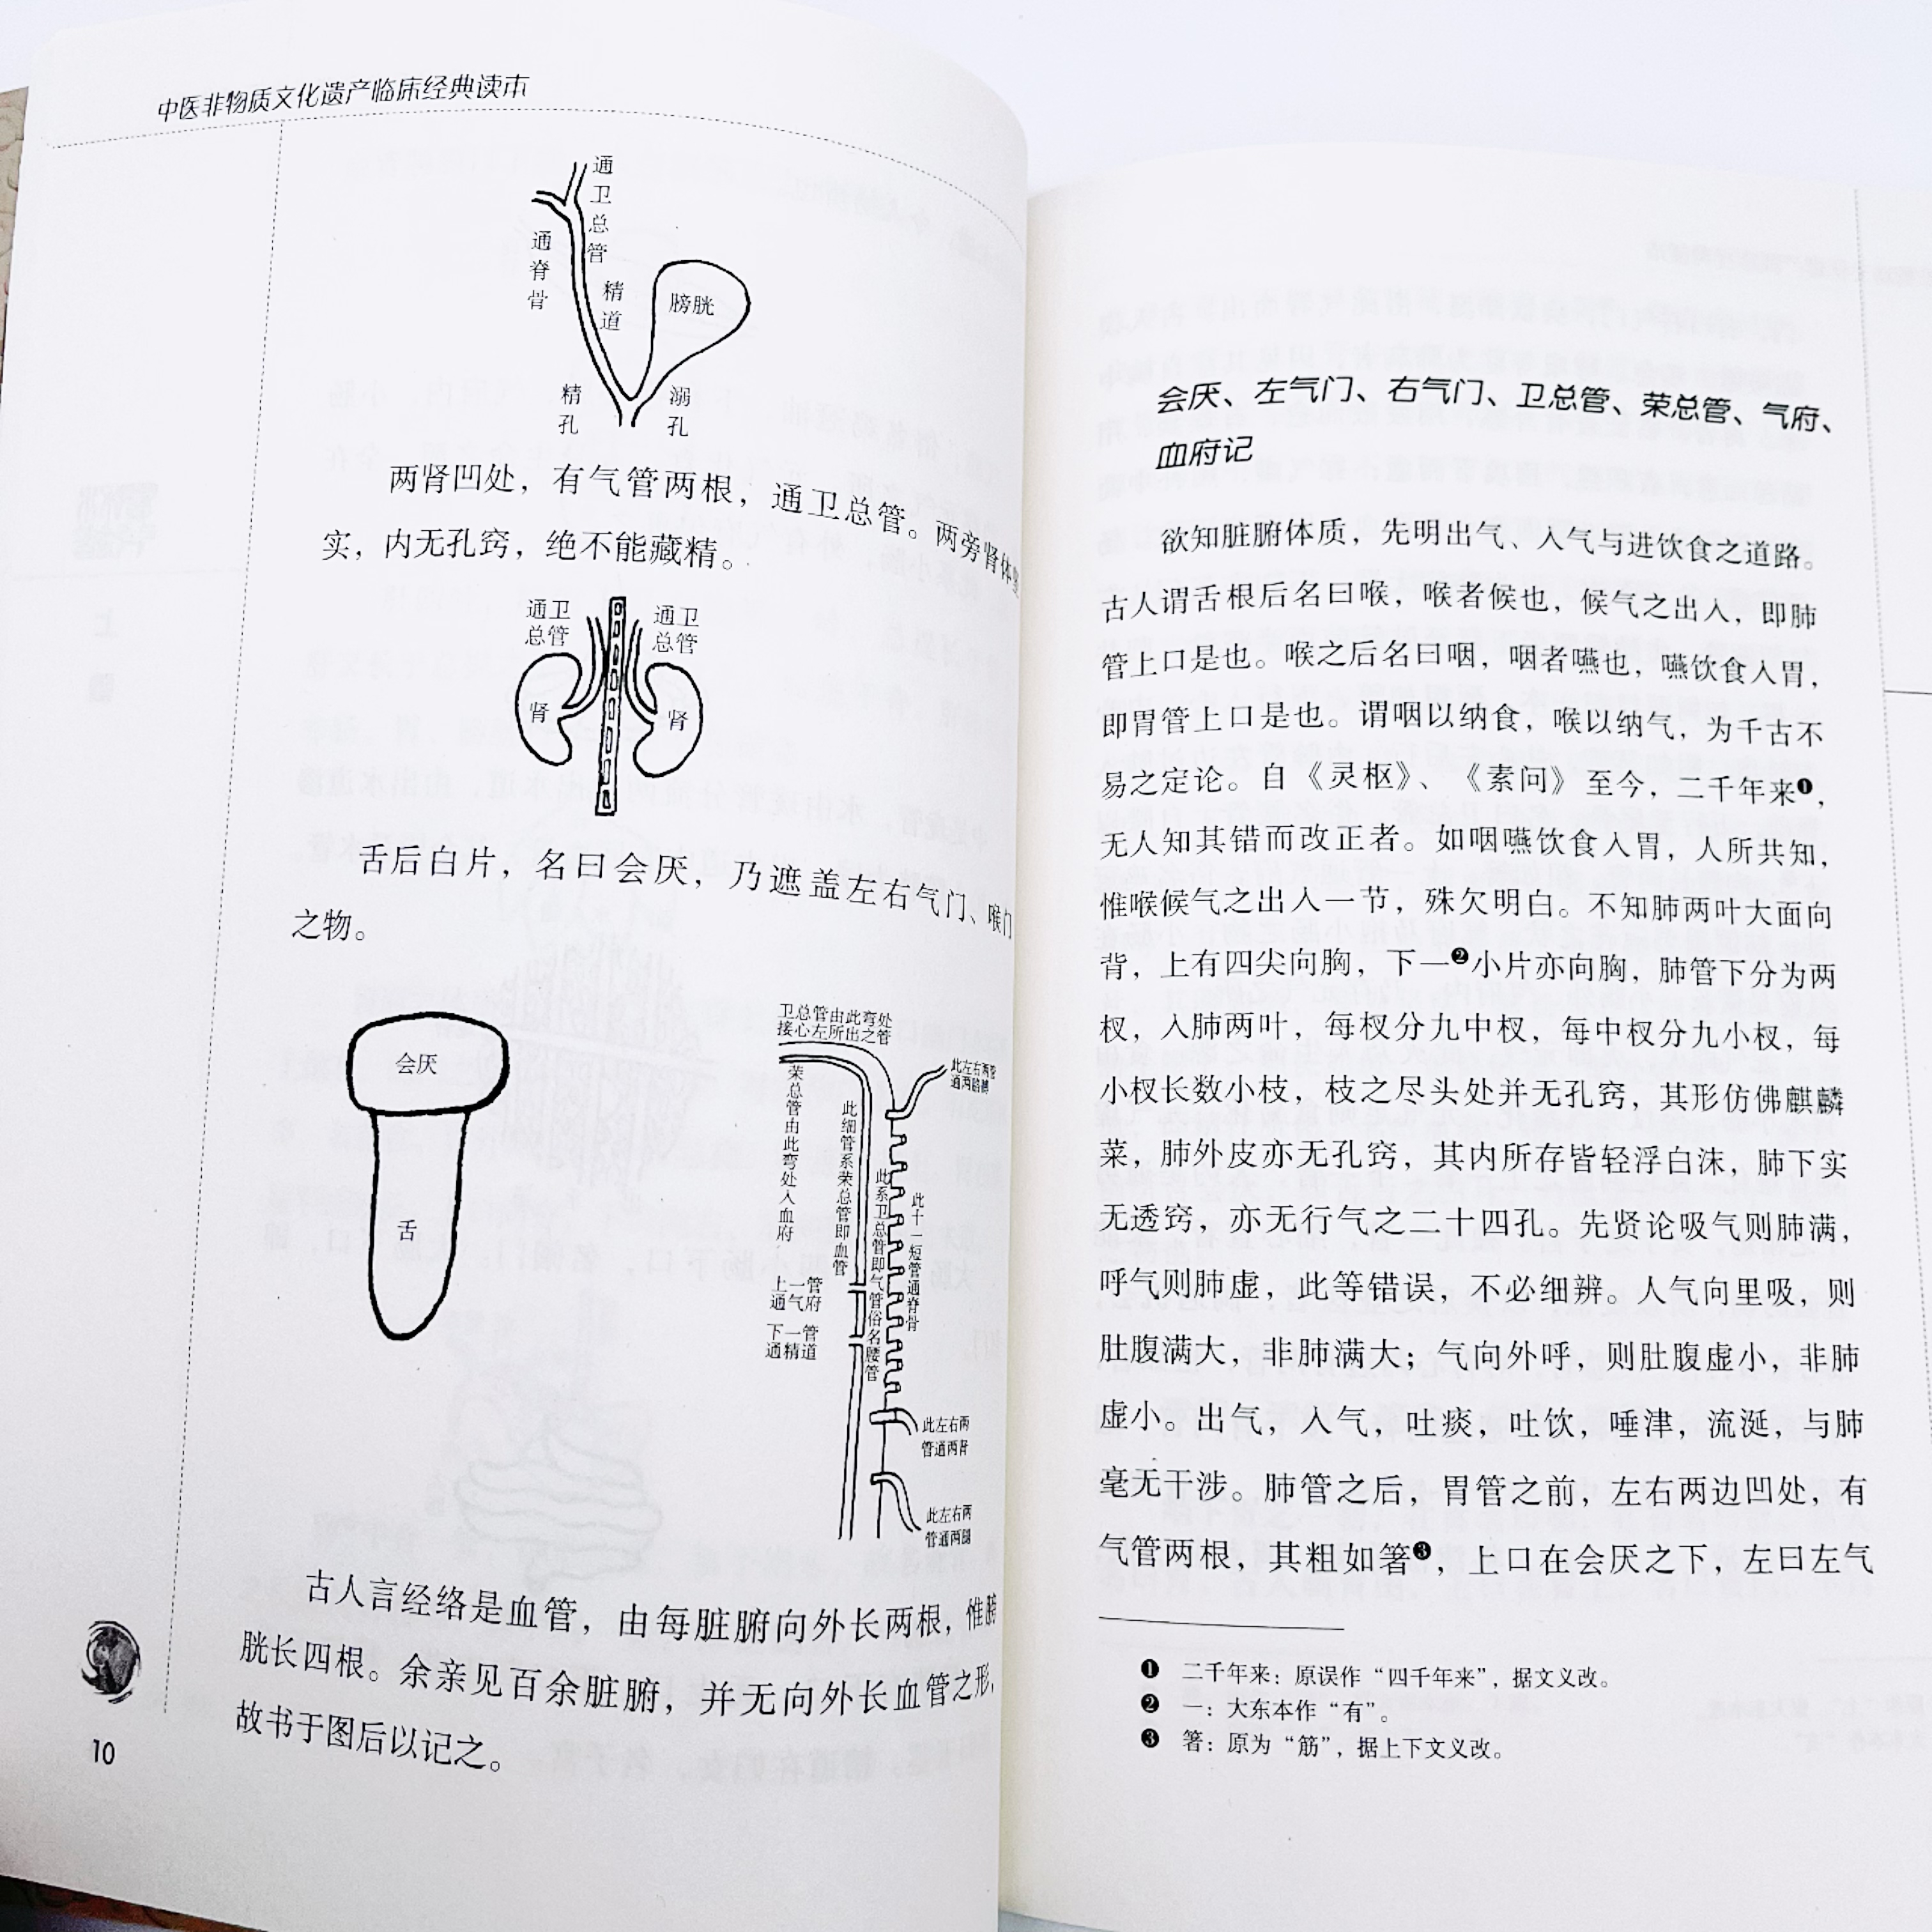 中医非物质文化遗产临床经典读本
通卫总管
通脊骨
精道
膀胱
精孔
溺孔
两肾凹处，有气管两根，通卫总管。两旁肾体坚
实，内无孔窍，绝不能藏精。
通卫
总管
通卫
总管
肾
肾
舌后白片，名曰会厌，乃遮盖左右气门、喉门
之物。
会厌
舌
卫总管由此弯处
接心左所出之管
荣总管由此弯处入血府
此细管系荣总管即血管
此系卫总管即气管俗名腰管
此十一短管通脊骨
此左右两管
通两胳膊
上一管
通气府
下一管
通精道
此左右两
管通两肾
此左右两
管通两腿
古人言经络是血管，由每脏腑向外长两根，惟膀
胱长四根。余亲见百余脏腑，并无向外长血管之形，
故书于图后以记之。
10
会厌、左气门、右气门、卫总管、荣总管、气府、
血府记
欲知脏腑体质，先明出气、入气与进饮食之道路。
古人谓舌根后名曰喉，喉者候也，候气之出入，即肺
管上口是也。喉之后名曰咽，咽者嚥也，嚥饮食入胃，
即胃管上口是也。谓咽以纳食，喉以纳气，为千古不
易之定论。自《灵枢》、《素问》至今，二千年来❶，
无人知其错而改正者。如咽嚥饮食入胃，人所共知，
惟喉候气之出入一节，殊欠明白。不知肺两叶大面向
背，上有四尖向胸，下一❷小片亦向胸，肺管下分为两
杈，入肺两叶，每杈分九中杈，每中杈分九小杈，每
小杈长数小枝，枝之尽头处并无孔窍，其形仿佛麒麟
菜，肺外皮亦无孔窍，其内所存皆轻浮白沫，肺下实
无透窍，亦无行气之二十四孔。先贤论吸气则肺满，
呼气则肺虚，此等错误，不必细辨。人气向里吸，则
肚腹满大，非肺满大；气向外呼，则肚腹虚小，非肺
虚小。出气，入气，吐痰，吐饮，唾津，流涎，与肺
毫无干涉。肺管之后，胃管之前，左右两边凹处，有
气管两根，其粗如箸❸，上口在会厌之下，左曰左气
❶ 二千年来：原误作“四千年来”，据文义改。
❷ 一：大东本作“有”。
❸ 箸：原为“筋”，据上下文义改。